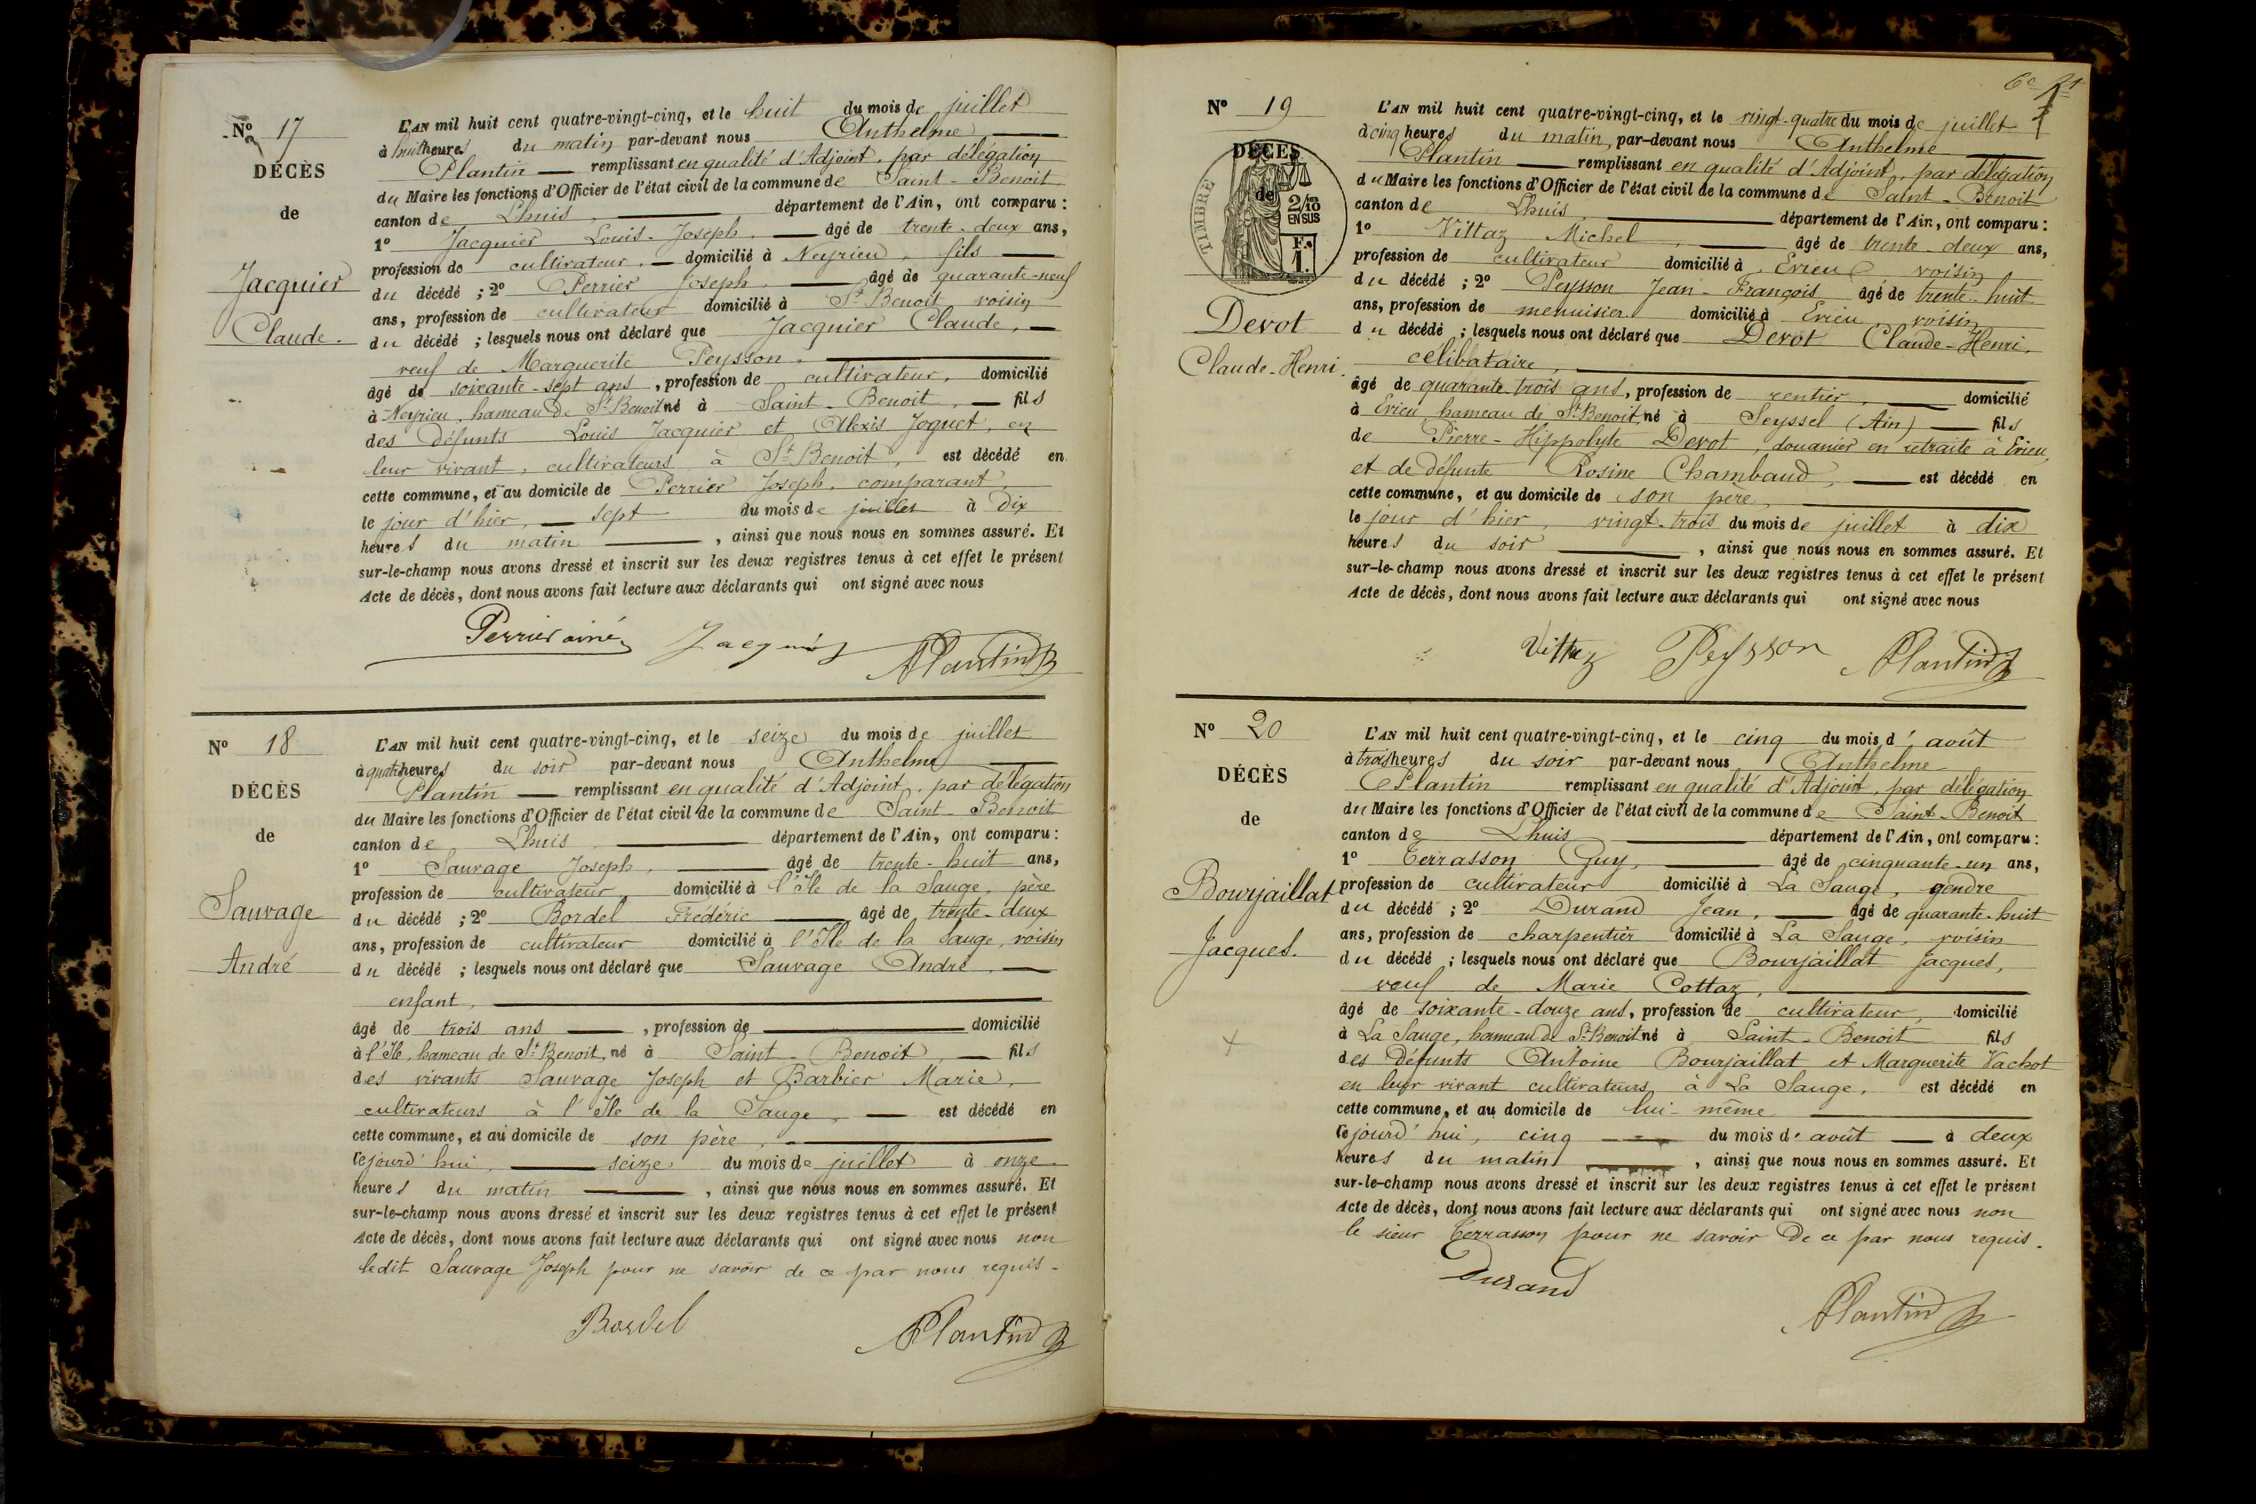 Nº 17
DÉCÈS
de
Jacquier
Claude.
L'AN mil huit cent quatre-vingt-cinq, et le huit du mois de juillet
à huit heures du matin par-devant nous Anthelme
Plantin remplissant en qualité d'Adjoint, par délégation
du Maire les fonctions d'Officier de l'état civil de la commune de Saint-Benoit
canton de Lhuis, département de l'Ain, ont comparu :
1º Jacquier Louis-Joseph, âgé de trente-deux ans,
profession de cultivateur, domicilié à Neyrieu, fils
du décédé ; 2º Perrier Joseph, âgé de quarante-neuf
ans, profession de cultivateur domicilié à St Benoit voisin
du décédé ; lesquels nous ont déclaré que Jacquier Claude,
veuf de Marguerite Peysson.
âgé de soixante-sept ans, profession de cultivateur, domicilié
à Neyrieu, hameau de St Benoit né à Saint-Benoit, fils
des défunts Louis Jacquier et Alexis Joguet, en
leur vivant, cultivateurs à St Benoit, est décédé en
cette commune, et au domicile de Perrier Joseph, comparant,
le jour d'hier, sept du mois de juillet à dix
heures du matin, ainsi que nous nous en sommes assuré. Et
sur-le-champ nous avons dressé et inscrit sur les deux registres tenus à cet effet le présent
Acte de décès, dont nous avons fait lecture aux déclarants qui ont signé avec nous
Perrier ainé Jacquier APlantin
Nº 18
DÉCÈS
de
Sauvage
André
L'AN mil huit cent quatre-vingt-cinq, et le seize du mois de juillet
à quatre heures du soir par-devant nous Anthelme
Plantin remplissant en qualité d'Adjoint, par délégation
du Maire les fonctions d'Officier de l'état civil de la commune de Saint-Benoit
canton de Lhuis département de l'Ain, ont comparu :
1º Sauvage Joseph, âgé de trente-huit ans,
profession de cultivateur, domicilié à l'Ile de la Sauge, père
du décédé ; 2º Bordel Frédéric âgé de trente-deux
ans, profession de cultivateur domicilié à l'Ile de la Sauge, voisin
du décédé ; lesquels nous ont déclaré que Sauvage André,
enfant,
âgé de trois ans, profession de domicilié
à l'Ile, hameau de St Benoit, né à Saint-Benoit, fils
des vivants Sauvage Joseph et Barbier Marie,
cultivateurs à l'Ile de la Sauge, est décédé en
cette commune, et au domicile de son père,
cejourd'hui, seize du mois de juillet à onze
heures du matin, ainsi que nous nous en sommes assuré. Et
sur-le-champ nous avons dressé et inscrit sur les deux registres tenus à cet effet le présent
Acte de décès, dont nous avons fait lecture aux déclarants qui ont signé avec nous non
ledit Sauvage Joseph pour ne savoir de ce par nous requis.
Bordel APlantin
Nº 19
DÉCÈS
de
TIMBRE
2/10 EN SUS
F. 1.
Devot
Claude-Henri.
L'AN mil huit cent quatre-vingt-cinq, et le vingt-quatre du mois de juillet
à cinq heures du matin, par-devant nous Anthelme
Plantin remplissant en qualité d'Adjoint, par délégation
du Maire les fonctions d'Officier de l'état civil de la commune de Saint-Benoit
canton de Lhuis, département de l'Ain, ont comparu :
1º Vittaz Michel, âgé de trente-deux ans,
profession de cultivateur domicilié à Evieu voisin
du décédé ; 2º Peysson Jean-François âgé de trente-huit
ans, profession de menuisier domicilié à Evieu voisin
du décédé ; lesquels nous ont déclaré que Devot Claude-Henri,
célibataire,
âgé de quarante-trois ans, profession de rentier, domicilié
à Evieu hameau de St Benoit, né à Seyssel (Ain) fils
de Pierre-Hippolyte Devot, douanier en retraite à Evieu,
et de défunte Rosine Chambaud, est décédé en
cette commune, et au domicile de son père,
le jour d'hier, vingt-trois du mois de juillet à dix
heures du soir, ainsi que nous nous en sommes assuré. Et
sur-le-champ nous avons dressé et inscrit sur les deux registres tenus à cet effet le présent
Acte de décès, dont nous avons fait lecture aux déclarants qui ont signé avec nous
Vittaz Peysson APlantin
Nº 20
DÉCÈS
de
Bourjaillat
Jacques.
L'AN mil huit cent quatre-vingt-cinq, et le cinq du mois d'août
à trois heures du soir par-devant nous Anthelme
Plantin remplissant en qualité d'Adjoint, par délégation
du Maire les fonctions d'Officier de l'état civil de la commune de Saint-Benoit
canton de Lhuis département de l'Ain, ont comparu :
1º Terrasson Guy, âgé de cinquante-un ans,
profession de cultivateur domicilié à La Sauge, gendre
du décédé ; 2º Durand Jean, âgé de quarante-huit
ans, profession de charpentier domicilié à La Sauge, voisin
du décédé ; lesquels nous ont déclaré que Bourjaillat Jacques,
veuf de Marie Cottaz,
âgé de soixante-douze ans, profession de cultivateur, domicilié
à La Sauge, hameau de St Benoit né à Saint-Benoit fils
des défunts Antoine Bourjaillat et Marguerite Vachot
en leur vivant cultivateurs à La Sauge, est décédé en
cette commune, et au domicile de lui-même
cejourd'hui, cinq du mois d'août à deux
heures du matin, ainsi que nous nous en sommes assuré. Et
sur-le-champ nous avons dressé et inscrit sur les deux registres tenus à cet effet le présent
Acte de décès, dont nous avons fait lecture aux déclarants qui ont signé avec nous non
le sieur Terrasson pour ne savoir de ce par nous requis.
Durand APlantin